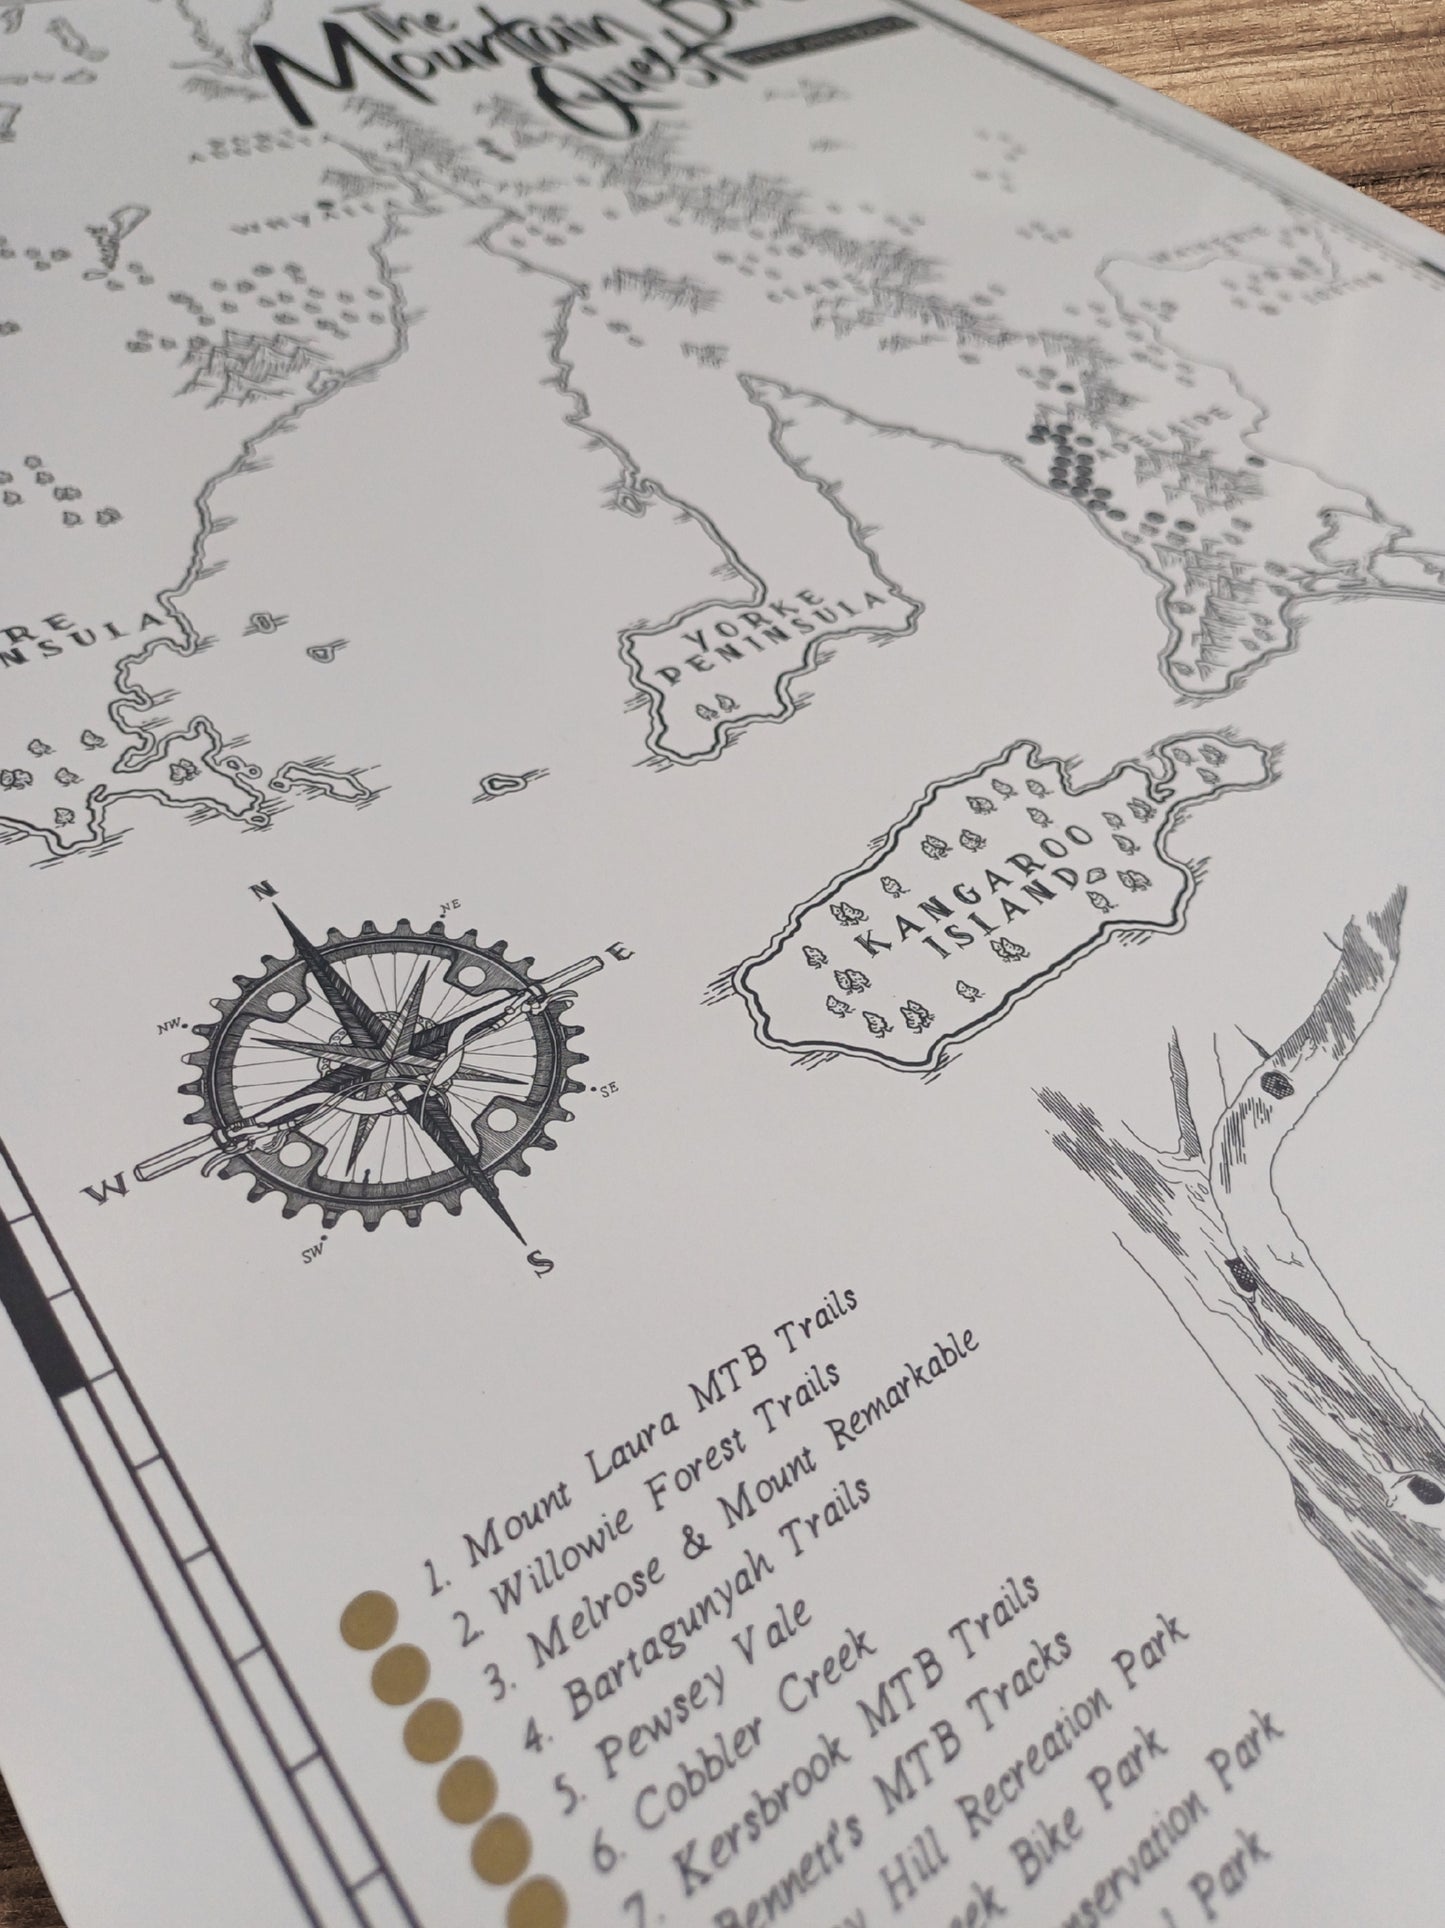 The
Mountain
Quest
PORT
AUGUSTA
WHYALLA
CLARE
YORKE
PENINSULA
KANGAROO
ISLAND
N
NE
E
SE
S
SW
W
NW
1. Mount Laura MTB Trails
2. Willowie Forest Trails
3. Melrose & Mount Remarkable
4. Bartagunyah Trails
5. Pewsey Vale
6. Cobbler Creek
7. Kersbrook MTB Trails
Bennett's MTB Tracks
Hill Recreation Park
Bike Park
Park
Park